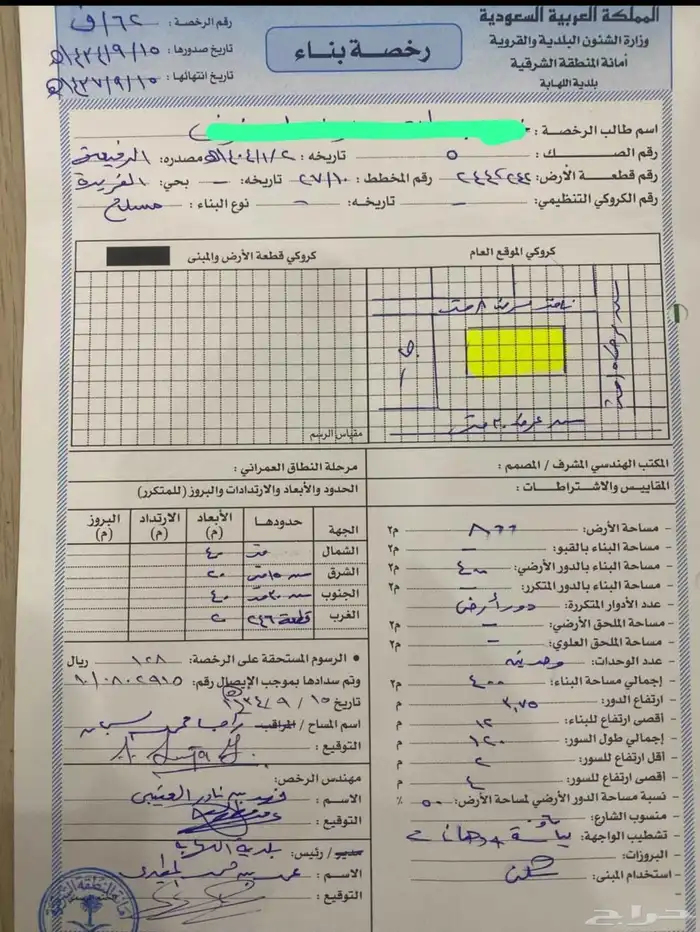 المملكة العربية السعودية
وزارة الشئون البلدية والقروية
أمانة المنطقة الشرقية
بلدية اللهابة
رخصة بناء
رقم الرخصة : ٦٢/ف
تاريخ صدورها : ١٤٣٤/٩/١٥هـ
تاريخ انتهائها : ١٤٣٧/٩/١٥هـ
اسم طالب الرخصة :
رقم الصـــك : ٥ تاريخه : ١٤٠٤/١/٢هـ مصدره: الرفيعة
رقم قطعة الأرض: ٢٤٤،٢٤٢ رقم المخطط: ٢٧/١٠ تاريخه: – بحي:
رقم الكروكي التنظيمي: – تاريخه: – نوع البناء : مسلح
كروكي الموقع العام
كروكي قطعة الأرض والمبنى
نافذ عرض ٨ متر
شارع عرض ٢٠ متر
مقياس الرسم
المكتب الهندسي المشرف / المصمم :
المقاييس والاشتراطات :
- مساحة الأرض: م٢
- مساحة البناء بالقبو: – م٢
- مساحة البناء بالدور الأرضي: ٤٠٠ م٢
- مساحة البناء بالدور المتكرر: – م٢
- عدد الأدوار المتكررة: دور أرضي
- مساحة الملحق الأرضي: – م٢
- مساحة الملحق العلوي: – م٢
- عدد الوحدات: وحدتين
- إجمالي مساحة البناء: ٤٠٠ م٢
- ارتفاع الدور: ٣,٧٥ م
- أقصى ارتفاع للبناء: ١٢ م
- إجمالي طول السور: ١٢٠ م
- أقل ارتفاع للسور: ٢ م
- أقصى ارتفاع للسور: ٤ م
- نسبة مساحة الدور الأرضي لمساحة الأرض: ٥٠ ٪
- منسوب الشارع:
- تشطيب الواجهة: لياسة ودهانات
- البروزات:
- استخدام المبنى: سكن
مرحلة النطاق العمراني :
الحدود والأبعاد والارتدادات والبروز (للمتكرر)
الجهة حدودها الأبعاد (م) الارتداد (م) البروز (م)
الشمال ٤٠
الشرق شارع ١٥ متر ٢٠
الجنوب شارع ٢٠ متر ٤٠
الغرب قطعة ٢٤٦ ٢٠
• الرسوم المستحقة على الرخصة: ١٢٨ ريال
وتم سدادها بموجب الإيصال رقم: ١٠/٠٨٠٢٩١٥
تاريخ ١٥ / ٩ / ١٤٣٤هـ
اسم المساح / المراقب:
التوقيع :
مهندس الرخص:
الاســم : فهد بن نادر العتيبي
التوقيع :
مدير/ رئيس: بلدية اللهابة
الاســم :
التوقيع :
أمانة المنطقة الشرقية
حراج